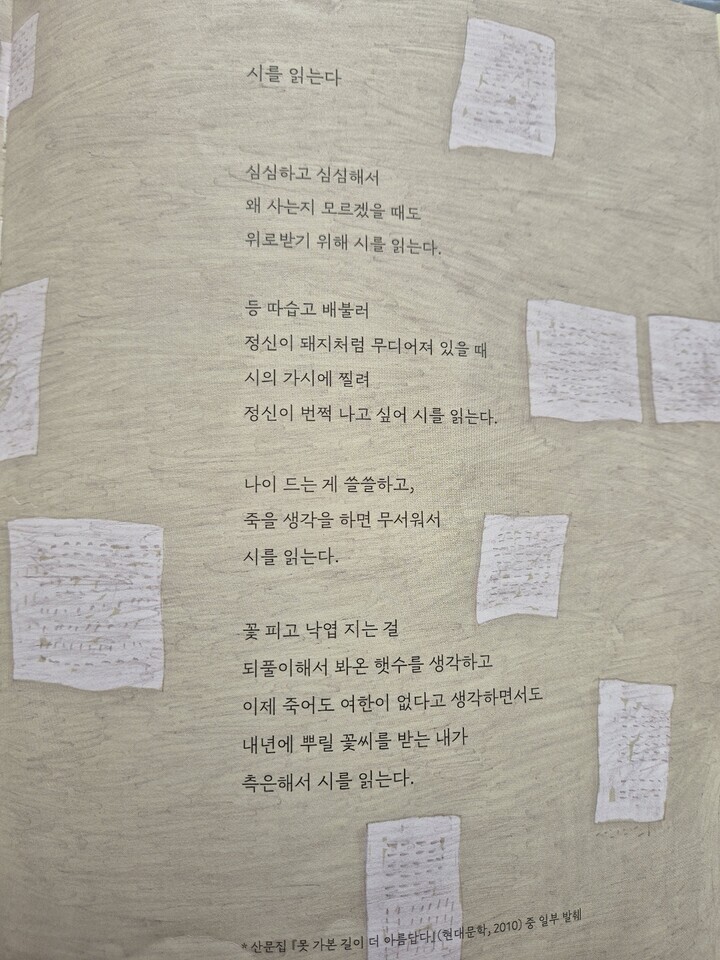 시를 읽는다
심심하고 심심해서
왜 사는지 모르겠을 때도
위로받기 위해 시를 읽는다.
등 따습고 배불러
정신이 돼지처럼 무디어져 있을 때
시의 가시에 찔려
정신이 번쩍 나고 싶어 시를 읽는다.
나이 드는 게 쓸쓸하고,
죽을 생각을 하면 무서워서
시를 읽는다.
꽃 피고 낙엽 지는 걸
되풀이해서 봐온 햇수를 생각하고
이제 죽어도 여한이 없다고 생각하면서도
내년에 뿌릴 꽃씨를 받는 내가
측은해서 시를 읽는다.
* 산문집 『못 가본 길이 더 아름답다』(현대문학, 2010) 중 일부 발췌